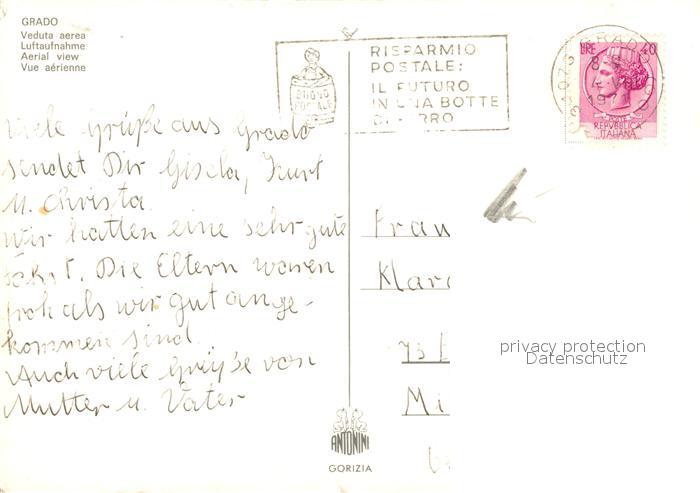 GRADO
Veduta aerea
Luftaufnahme
Aerial view
Vue aérienne
RISPARMIO
POSTALE:
IL FUTURO
IN UNA BOTTE
DI FERRO
BUONO
POSTALE
GRADO
LIRE 40
POSTE
REPVBBLICA
ITALIANA
Viele Grüße aus Grado
sendet Dir Gisela, Kurt
u. Christa.
Wir hatten eine sehr gute
Fahrt. Die Eltern waren
froh als wir gut ange-
kommen sind.
Auch viele Grüße von
Mutter u. Vater
Frau
Klar
73
Mi
privacy protection
Datenschutz
ANTONINI
GORIZIA